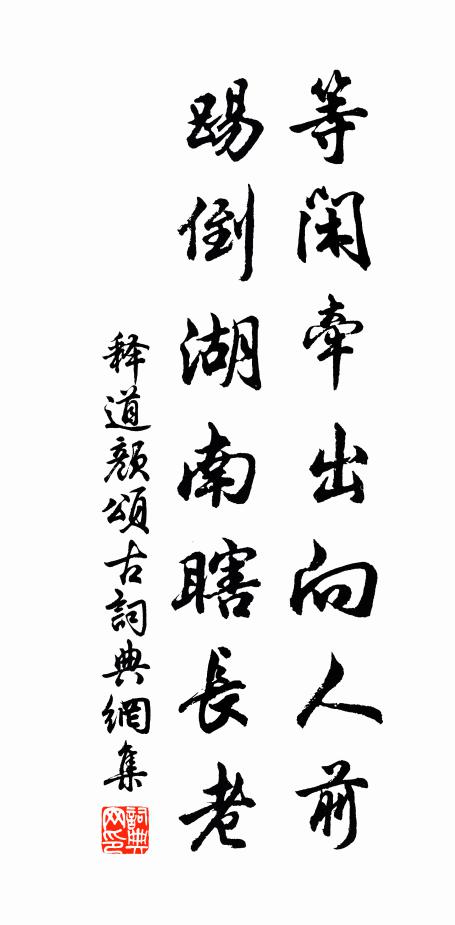 等閑牽出向人前
踢倒湖南瞎長老
释道颜頌古詞典網集
詞典网印